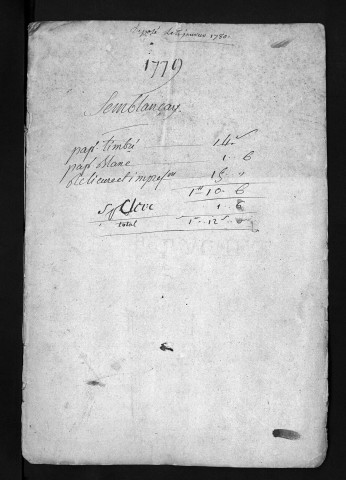 déposé le janvier 1780.
1779
Semblançay.
pap.r timbré 14 s
pap.r blanc 1.. 6
Relieure et impre.on 15 "
1 tt 10.. 6
Clerc 1.. 6
total 1 tt.. 12 s..